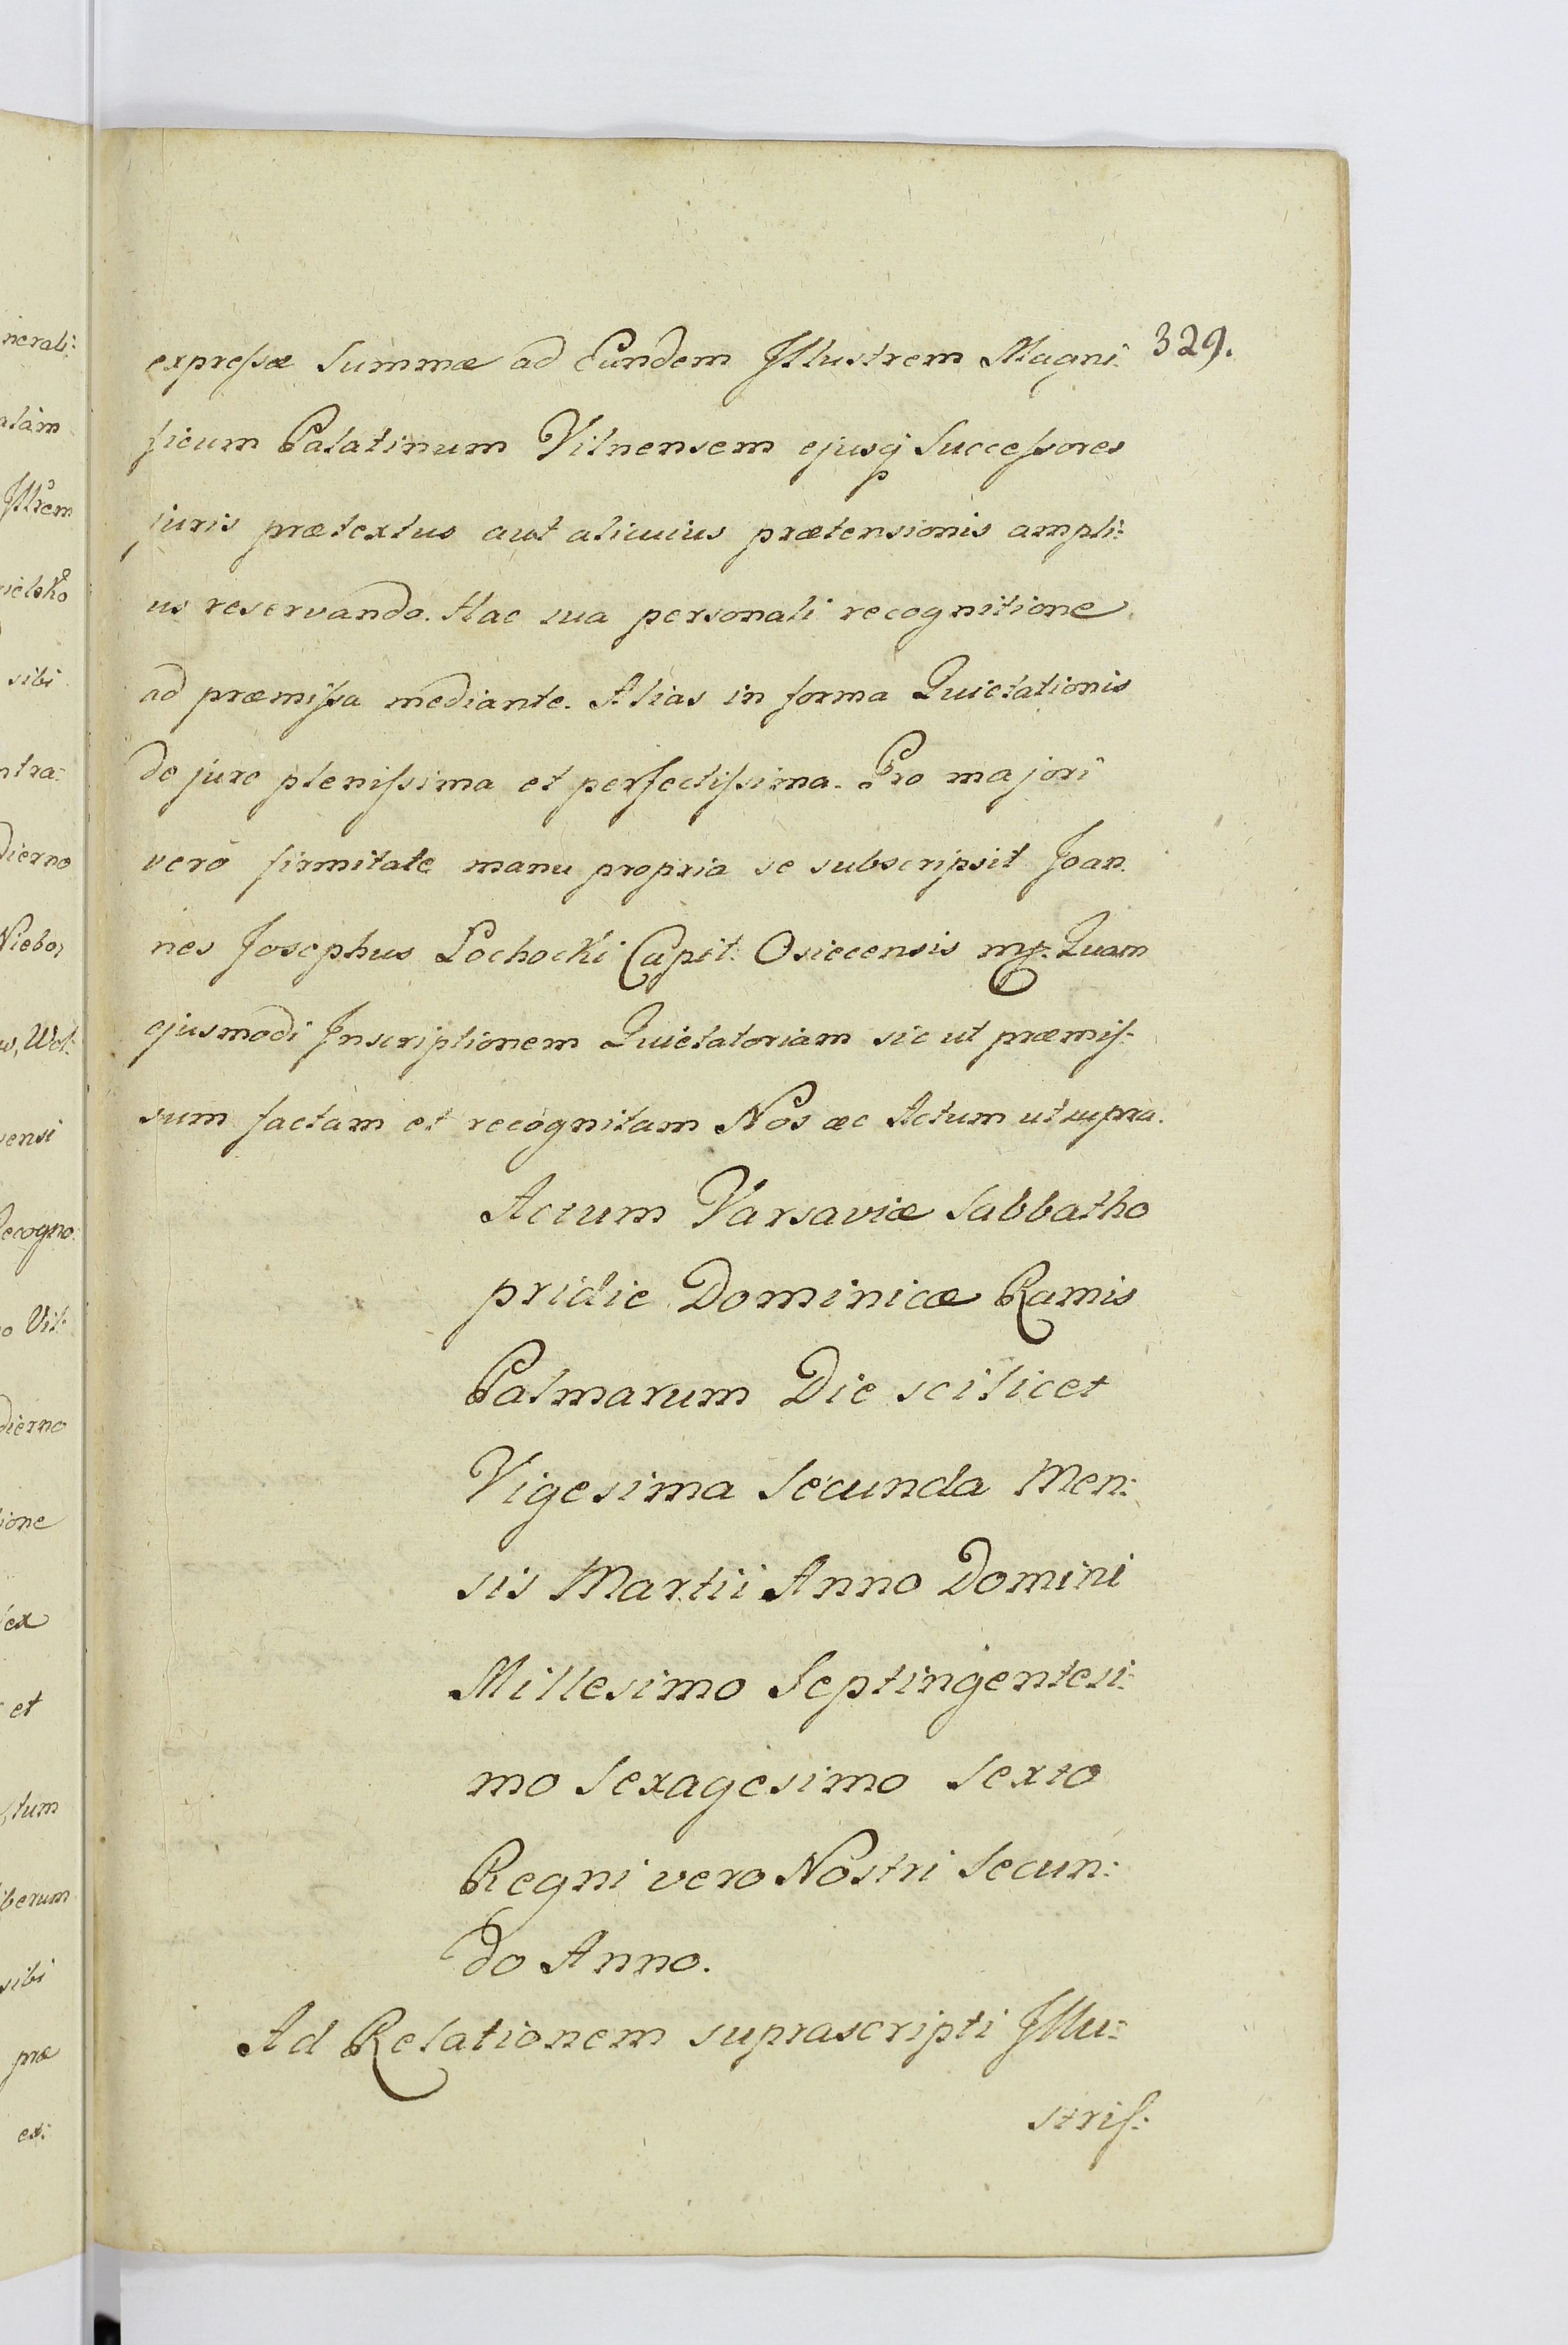 329.
expreſsæ Summæ ad Eundem Illustrem Magni:
ficum Palatinum Vilnensem ejusq̃ Succeſsores
juris prætextus aut alicuius prætensionis ampli:
us reservando. Hac sua personali recognitione
ad præmiſsa mediante. Alias in forma Quietationis
de jure pleniſsima et perfectiſsima. Pro majori
verò firmitate manu propria se subscripsit Joan:
nes Josephus Lochocki Capit: Osiecensis mp. Quam
ejusmodi Inscriptionem Quietatoriam sic ut præmiſ:
sum factam et recognitam Nos ac Actum ut supra.
Actum Varsaviæ Sabbatho
pridie Dominicæ Ramis
Palmarum Die scilicet
Vigesima Secunda Men:
sis Martii Anno Domini
Millesimo Septingentesi:
mo Sexagesimo Sexto
Regni vero Nostri Secun:
do Anno.
Ad Relationem suprascripti Illu:
striſ: